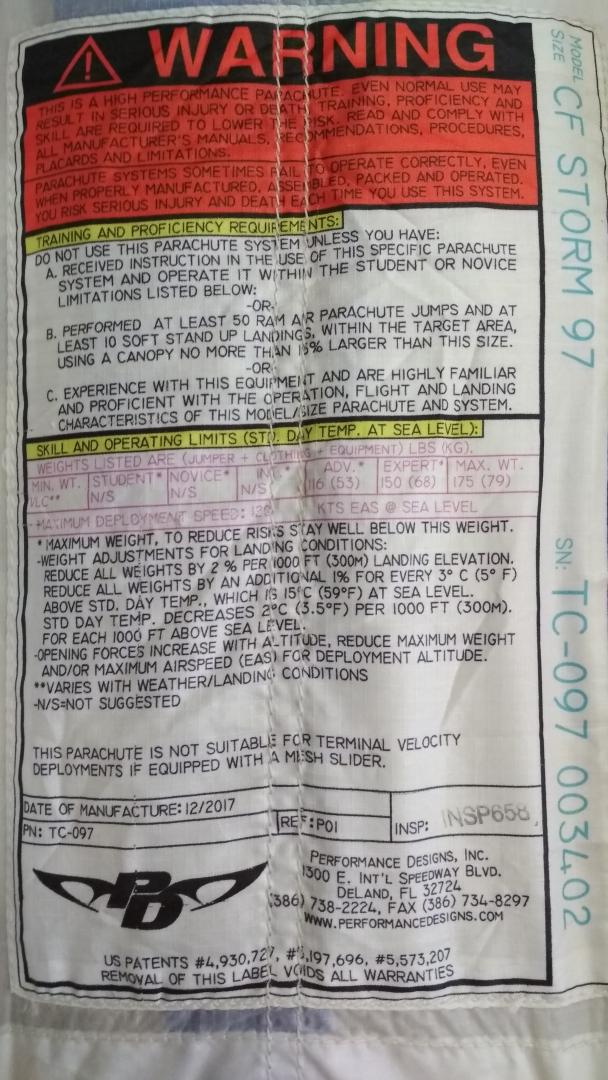 WARNING
THIS IS A HIGH PERFORMANCE PARACHUTE. EVEN NORMAL USE MAY
RESULT IN SERIOUS INJURY OR DEATH. TRAINING, PROFICIENCY AND
SKILL ARE REQUIRED TO LOWER THE RISK. READ AND COMPLY WITH
ALL MANUFACTURER'S MANUALS, RECOMMENDATIONS, PROCEDURES,
PLACARDS AND LIMITATIONS.
PARACHUTE SYSTEMS SOMETIMES FAIL TO OPERATE CORRECTLY, EVEN
WHEN PROPERLY MANUFACTURED, ASSEMBLED, PACKED AND OPERATED.
YOU RISK SERIOUS INJURY AND DEATH EACH TIME YOU USE THIS SYSTEM.
TRAINING AND PROFICIENCY REQUIREMENTS:
DO NOT USE THIS PARACHUTE SYSTEM UNLESS YOU HAVE:
A. RECEIVED INSTRUCTION IN THE USE OF THIS SPECIFIC PARACHUTE
SYSTEM AND OPERATE IT WITHIN THE STUDENT OR NOVICE
LIMITATIONS LISTED BELOW:
-OR-
B. PERFORMED AT LEAST 50 RAM AIR PARACHUTE JUMPS AND AT
LEAST 10 SOFT STAND UP LANDINGS, WITHIN THE TARGET AREA,
USING A CANOPY NO MORE THAN 15% LARGER THAN THIS SIZE.
-OR-
C. EXPERIENCE WITH THIS EQUIPMENT AND ARE HIGHLY FAMILIAR
AND PROFICIENT WITH THE OPERATION, FLIGHT AND LANDING
CHARACTERISTICS OF THIS MODEL/SIZE PARACHUTE AND SYSTEM.
SKILL AND OPERATING LIMITS (STD. DAY TEMP. AT SEA LEVEL):
WEIGHTS LISTED ARE (JUMPER + CLOTHING + EQUIPMENT) LBS (KG).
MIN. WT. STUDENT* NOVICE* INT.* ADV.* EXPERT* MAX. WT.
VLC** N/S N/S N/S 116 (53) 150 (68) 175 (79)
-MAXIMUM DEPLOYMENT SPEED: 120 KTS EAS @ SEA LEVEL
*MAXIMUM WEIGHT, TO REDUCE RISKS STAY WELL BELOW THIS WEIGHT.
-WEIGHT ADJUSTMENTS FOR LANDING CONDITIONS:
REDUCE ALL WEIGHTS BY 2 % PER 1000 FT (300M) LANDING ELEVATION.
REDUCE ALL WEIGHTS BY AN ADDITIONAL 1% FOR EVERY 3° C (5° F)
ABOVE STD. DAY TEMP., WHICH IS 15°C (59°F) AT SEA LEVEL.
STD DAY TEMP. DECREASES 2°C (3.5°F) PER 1000 FT (300M).
FOR EACH 1000 FT ABOVE SEA LEVEL.
-OPENING FORCES INCREASE WITH ALTITUDE, REDUCE MAXIMUM WEIGHT
AND/OR MAXIMUM AIRSPEED (EAS) FOR DEPLOYMENT ALTITUDE.
**VARIES WITH WEATHER/LANDING CONDITIONS
-N/S=NOT SUGGESTED
THIS PARACHUTE IS NOT SUITABLE FOR TERMINAL VELOCITY
DEPLOYMENTS IF EQUIPPED WITH A MESH SLIDER.
DATE OF MANUFACTURE: 12/2017
PN: TC-097
REF: P01
INSP: INSP658
PD
PERFORMANCE DESIGNS, INC.
1300 E. INT'L SPEEDWAY BLVD.
DELAND, FL 32724
(386) 738-2224, FAX (386) 734-8297
WWW.PERFORMANCEDESIGNS.COM
US PATENTS #4,930,727, #5,197,696, #5,573,207
REMOVAL OF THIS LABEL VOIDS ALL WARRANTIES
MODEL
SIZE
CF STORM 97
SN: TC-097 003402